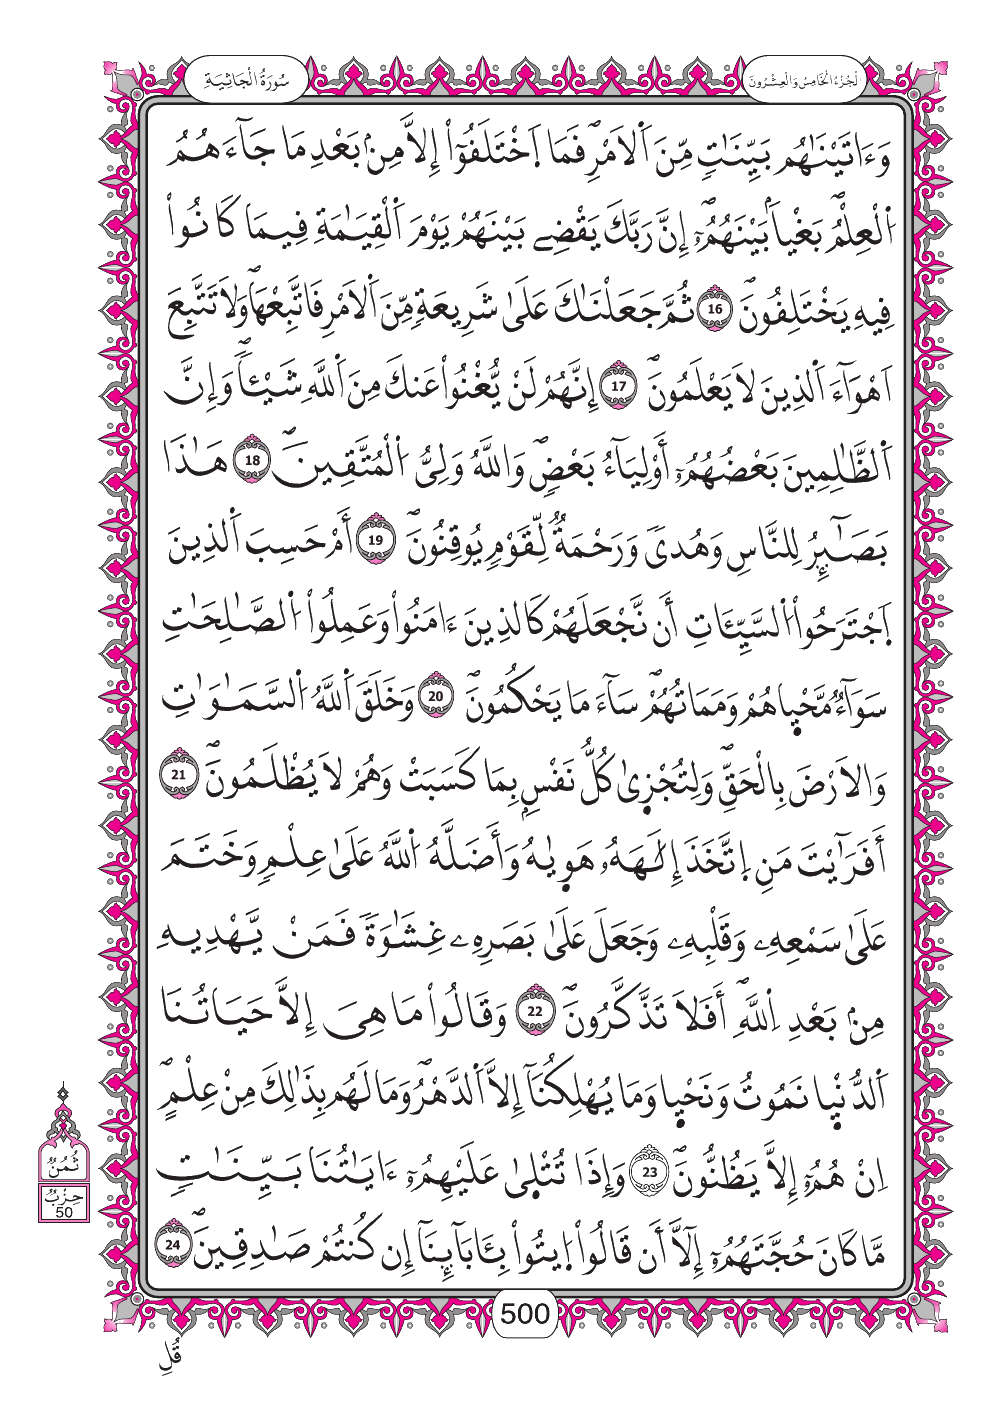 سُورَةُ الْجَاثِيَةِ
الْجُزْءُ الْخَامِسُ وَالْعِشْرُونَ
وَءَاتَيْنَٰهُم بَيِّنَٰتٖ مِّنَ اَ۬لَامْرِۖ فَمَا اَ۪خْتَلَفُوٓاْ إِلَّا مِنۢ بَعْدِ مَا جَآءَهُمُ
اُ۬لْعِلْمُ بَغْياَۢ بَيْنَهُمُۥٓۖ إِنَّ رَبَّكَ يَقْضِے بَيْنَهُمْ يَوْمَ اَ۬لْقِيَٰمَةِ فِيمَا كَانُواْ
فِيهِ يَخْتَلِفُونَۖ 16 ثُمَّ جَعَلْنَٰكَ عَلَىٰ شَرِيعَةٖ مِّنَ اَ۬لَامْرِ فَاتَّبِعْهَاۖ وَلَا تَتَّبِعَ
اَهْوَآءَ اَ۬لذِينَ لَا يَعْلَمُونَۖ 17 إِنَّهُمْ لَنْ يُّغْنُواْ عَنكَ مِنَ اَ۬للَّهِ شَيْـٔاٗۖ وَإِنَّ
اَ۬لظَّٰلِمِينَ بَعْضُهُمُۥٓ أَوْلِيَآءُ بَعْضٖۖ وَاللَّهُ وَلِيُّ اُ۬لْمُتَّقِينَۖ 18 هَٰذَا
بَصَٰٓئِرُ لِلنَّاسِ وَهُدىٗ وَرَحْمَةٞ لِّقَوْمٖ يُوقِنُونَۖ 19 أَمْ حَسِبَ اَ۬لذِينَ
اَ۪جْتَرَحُواْ اُ۬لسَّيِّـَٔاتِ أَن نَّجْعَلَهُمْ كَالذِينَ ءَامَنُواْ وَعَمِلُواْ اُ۬لصَّٰلِحَٰتِ
سَوَآءٞ مَّحْيٜاهُمْ وَمَمَاتُهُمْۖ سَآءَ مَا يَحْكُمُونَۖ 20 وَخَلَقَ اَ۬للَّهُ اُ۬لسَّمَٰوَٰتِ
وَالَارْضَ بِالْحَقِّۖ وَلِتُجْز۪ىٰ كُلُّ نَفْسِۢ بِمَا كَسَبَتْ وَهُمْ لَا يُظْلَمُونَۖ 21
أَفَرَٰٓيْتَ مَنِ اِ۪تَّخَذَ إِلَٰهَهُۥ هَو۪يٰهُ وَأَضَلَّهُ اُ۬للَّهُ عَلَىٰ عِلْمٖ وَخَتَمَ
عَلَىٰ سَمْعِهِۦ وَقَلْبِهِۦ وَجَعَلَ عَلَىٰ بَصَرِهِۦ غِشَٰوَةٗ فَمَنْ يَّهْدِيهِ
مِنۢ بَعْدِ اِ۬للَّهِۖ أَفَلَا تَذَّكَّرُونَۖ 22 وَقَالُواْ مَا هِيَ إِلَّا حَيَاتُنَا
اَ۬لدُّنْي۪ا نَمُوتُ وَنَحْي۪ا وَمَا يُهْلِكُنَآ إِلَّا اَ۬لدَّهْرُۖ وَمَا لَهُم بِذَٰلِكَ مِنْ عِلْمٍۖ
اِنْ هُمُۥٓ إِلَّا يَظُنُّونَۖ 23 وَإِذَا تُتْل۪ىٰ عَلَيْهِمُۥٓ ءَايَٰتُنَا بَيِّنَٰتٖ
مَّا كَانَ حُجَّتَهُمُۥٓ إِلَّآ أَن قَالُواْ اُ۪يتُواْ بِـَٔابَآئِنَآ إِن كُنتُمْ صَٰدِقِينَۖ 24
ثُمُنُ
حِزْبُ
50
500
قُلِ